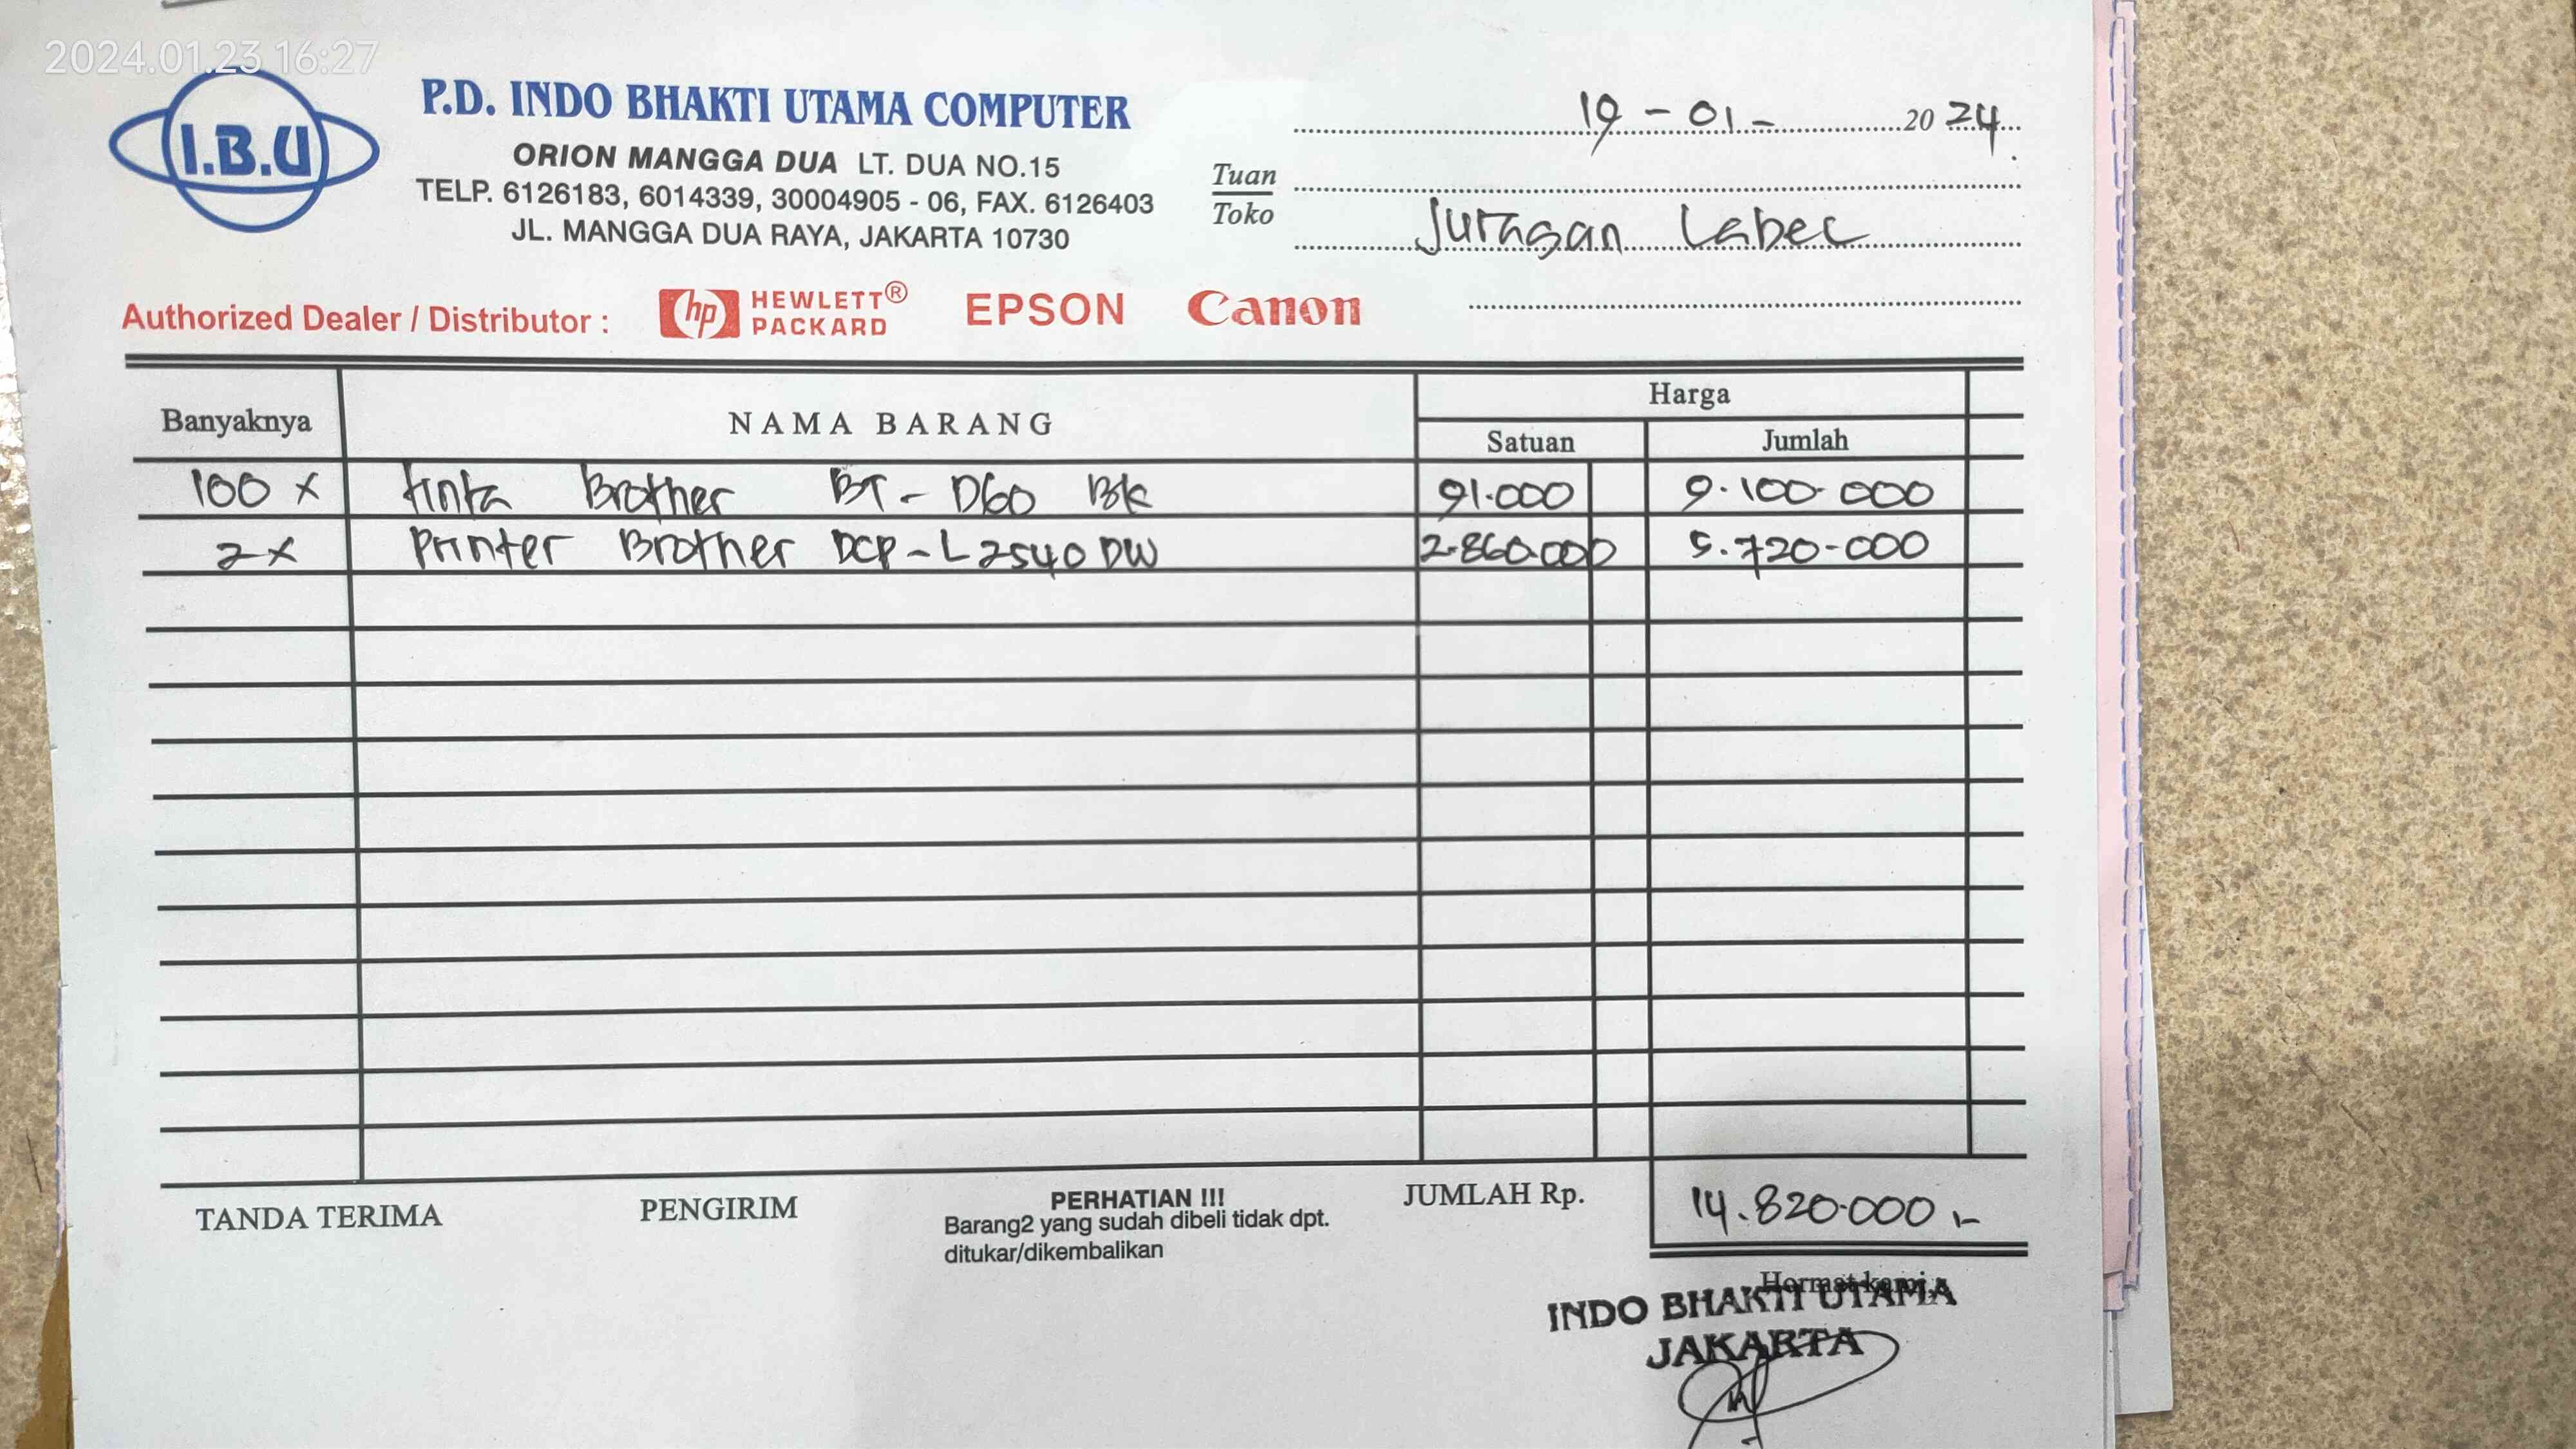 2024.01.23 16:27
I.B.U
P.D. INDO BHAKTI UTAMA COMPUTER
ORION MANGGA DUA LT. DUA NO.15
TELP. 6126183, 6014339, 30004905 - 06, FAX. 6126403
JL. MANGGA DUA RAYA, JAKARTA 10730
19 - 01 - 2024
Tuan
Toko
Juragan Label
Authorized Dealer / Distributor : hp HEWLETT® PACKARD EPSON Canon
Banyaknya NAMA BARANG Harga
Satuan Jumlah
100 x tinta Brother BT - D60 Bk 91.000 9.100.000
2 x Printer Brother DCP - L2540 DW 2.860.000 5.720-000
TANDA TERIMA PENGIRIM PERHATIAN !!! JUMLAH Rp. 14.820.000 ,-
Barang2 yang sudah dibeli tidak dpt.
ditukar/dikembalikan
Hormat kami,
INDO BHAKTI UTAMA
JAKARTA